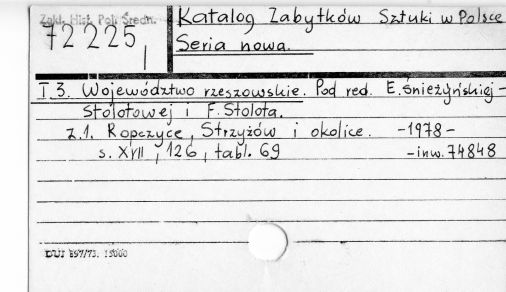 Zakł. Hist. Pol. Średn.
72 225,
Katalog Zabytków Sztuki w Polsce
Seria nowa.
I 3. Województwo rzeszowskie. Pod red. E. Śnieżyńskiej-
Stolotowej i F. Stolota.
z.1. Ropczyce, Strzyżów i okolice. -1978-
s. XVII, 126, tabl. 69 -inw. 74848
DUJ 897/73. 15000